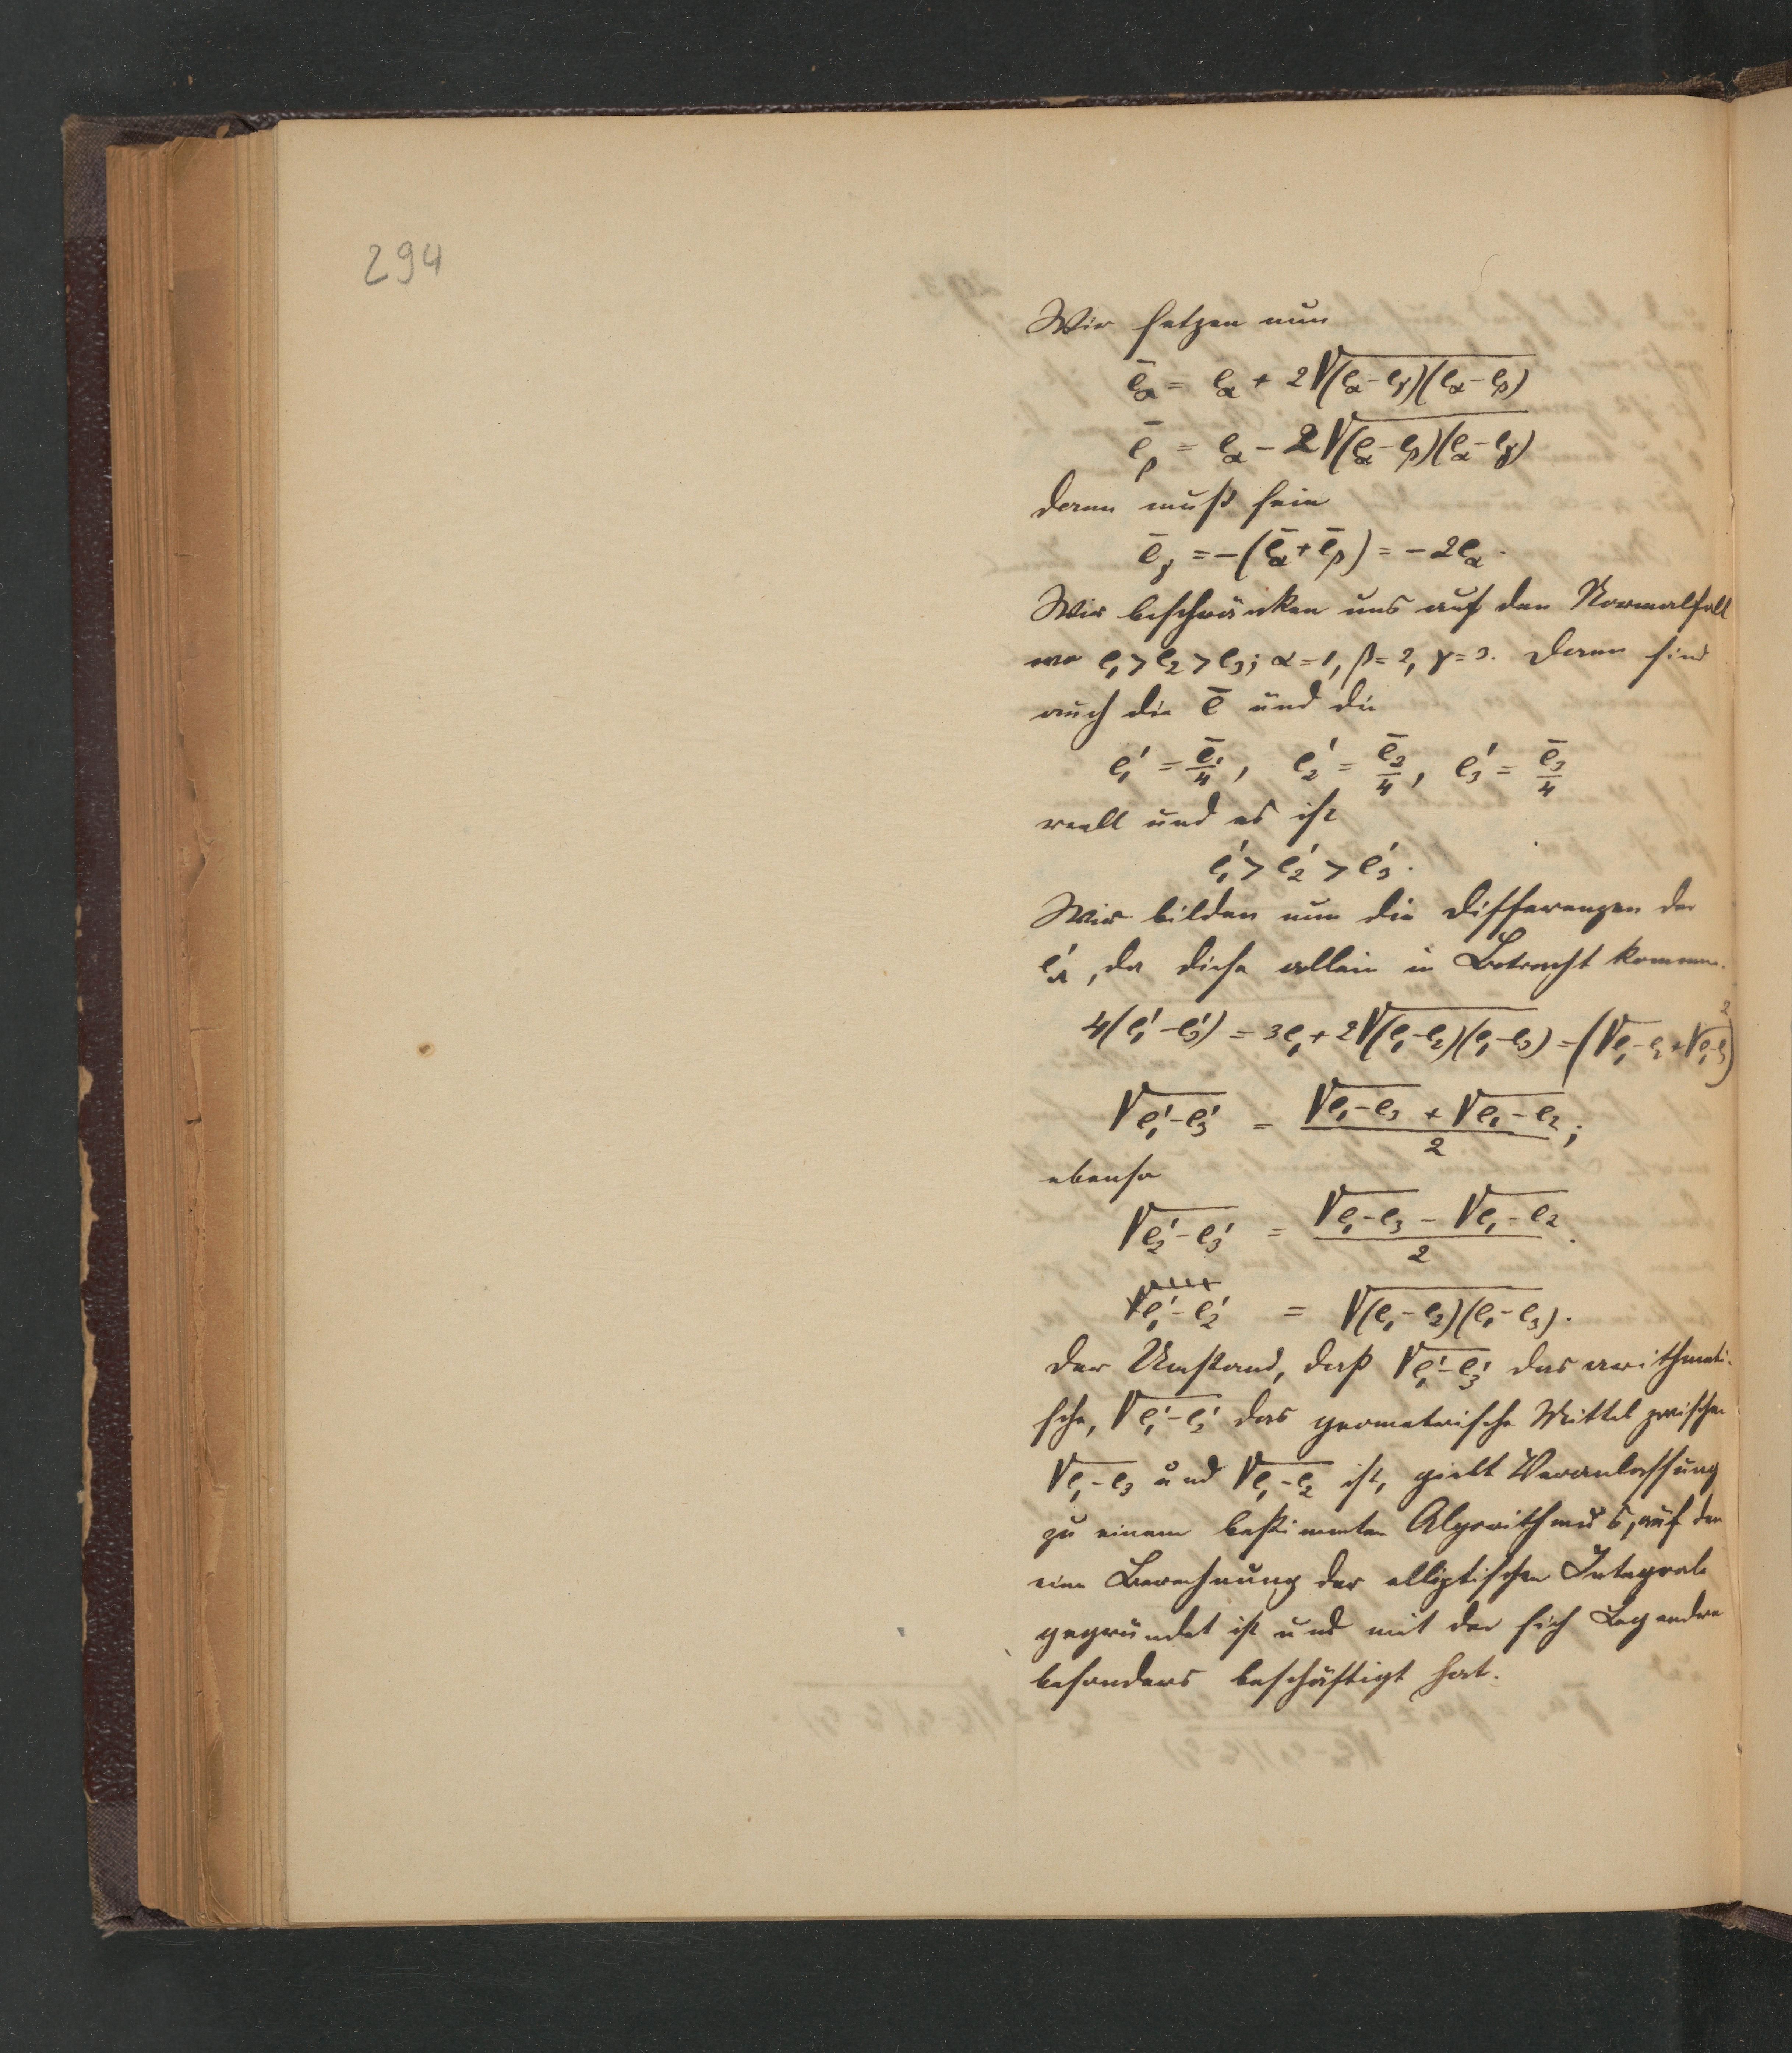 294
Wir setzen nun
ē_α = e_α + 2√(e_α-e_γ)(e_α-e_β)
ē_β = e_α - 2√(e_α-e_β)(e_α-e_γ)
dann muß sein
ē_γ = -(ē_α+ē_β) = -2e_α.
Wir beschränken uns auf den Normalfall
wo e₁>e₂>e₃; α=1, β=2, γ=3. Dann sind
auch die ē und die
e₁' = ē₁/4, e₂' = ē₂/4, e₃' = ē₃/4
reell und es ist
e₁' > e₂' > e₃'.
Wir bilden nun die Differenzen der
e'_α, da diese allein in Betracht kommen.
4(e₁'-e₃') = 3e₁+2√(e₁-e₂)(e₁-e₃) = (√e₁-e₂+√e₁-e₃)²
√e₁'-e₃' = (√e₁-e₃ + √e₁-e₂)/2;
ebenso
√e₂'-e₃' = (√e₁-e₃ - √e₁-e₂)/2.
e₁'-e₂' = √(e₁-e₂)(e₁-e₃).
Der Umstand, daß √e₁'-e₃' das arithmeti-
sche, √e₁'-e₂' das geometrische Mittel zwischen
√e₁-e₃ und √e₁-e₂ ist, giebt Veranlassung
zu einem bestimmten Algorithmus, auf den
eine Berechnung der elliptischen Integrale
gegründet ist und mit der sich Legendre
besonders beschäftigt hat.